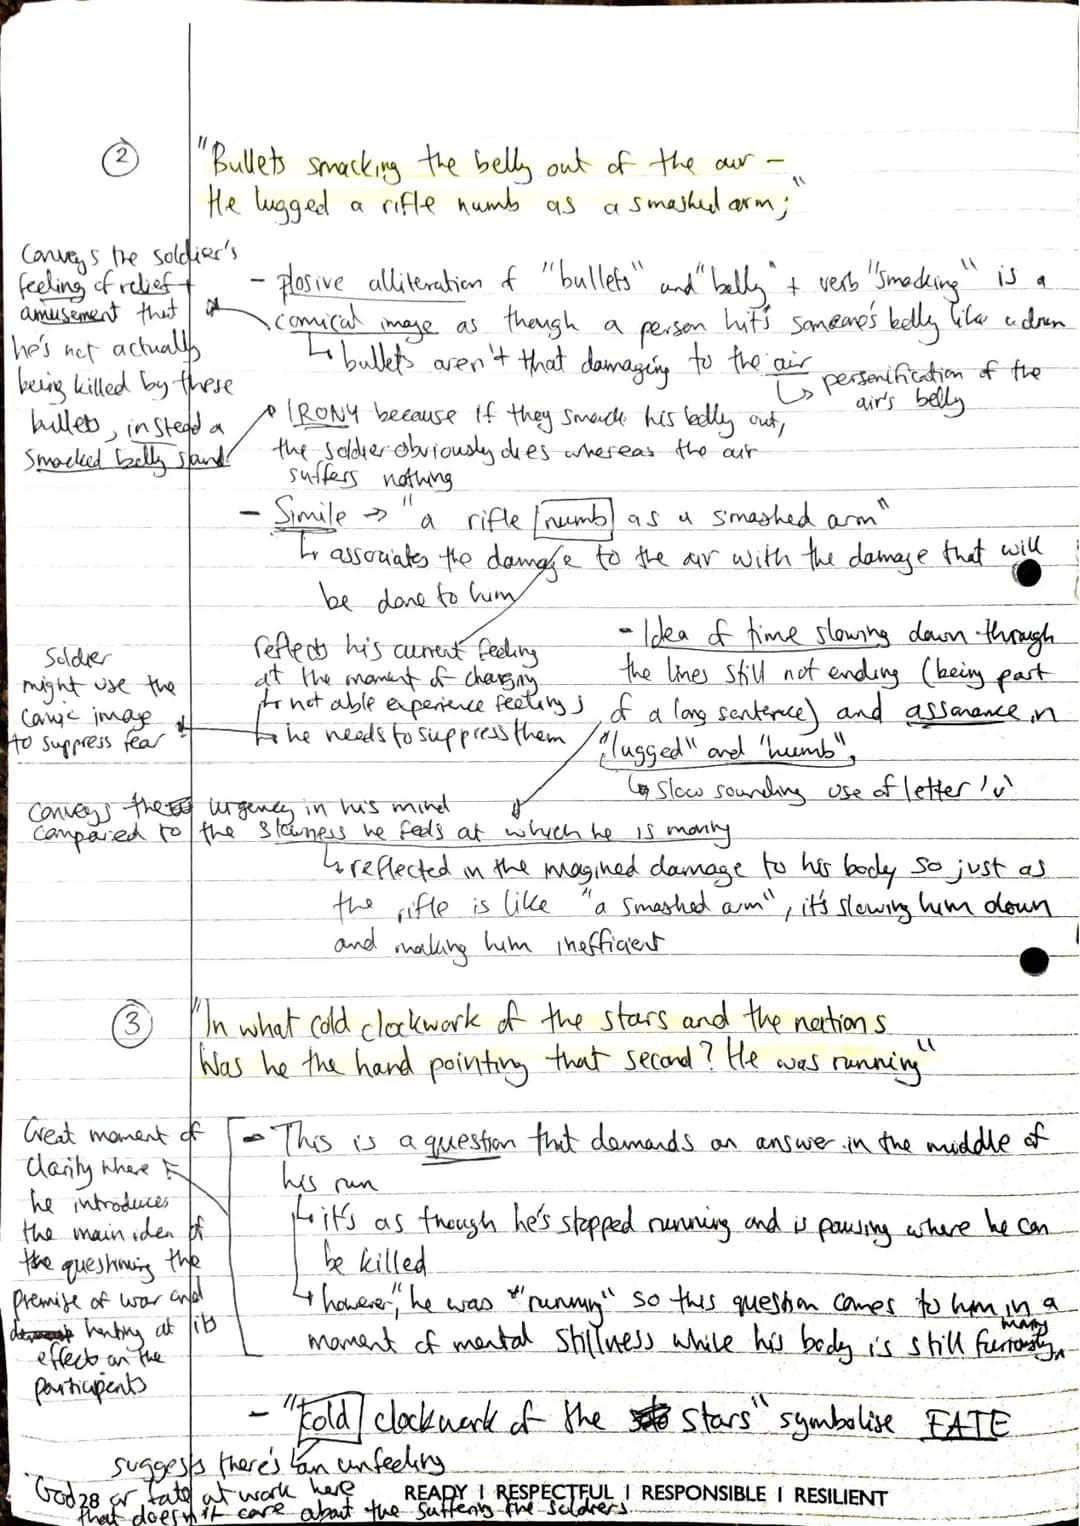 ②
"Bullets smacking the belly out of the air -
He lugged a rifle numb as a smashed arm;"
Conveys the soldier's
feeling of relief +
amusement that
he's not actually
being killed by these
bullets, instead a
smacked belly sand
- plosive alliteration of "bullets" and "belly" + verb "smacking" is a
comical image as though a person hits someone's belly like a drum
↳ bullets aren't that damaging to the air
↳ personification of the
air's belly
IRONY because if they smack his belly out,
the soldier obviously dies whereas the air
suffers nothing
- Simile → "a rifle numb as a smashed arm"
↳ associates the damage to the air with the damage that will
be done to him
reflects his current feeling
at the moment of charging
↳ not able experience feelings
↳ he needs to suppress them
Soldier
might use the
comic image
to suppress fear
- Idea of time slowing down through
the lines still not ending (being part
of a long sentence) and assonance in
"lugged" and "numb",
↳ slow sounding use of letter 'u'
Conveys the urgency in his mind
compared to the slowness he feels at which he is moving
↳ reflected in the imagined damage to his body so just as
the rifle is like "a smashed arm", it's slowing him down
and making him inefficient
③
"In what cold clockwork of the stars and the nations
Was he the hand pointing that second? He was running"
Great moment of
clarity where
he introduces
the main idea of
the questioning the
premise of war and
hinting at its
effects on the
participants
- This is a question that demands an answer in the middle of
his run
↳ it's as though he's stopped running and is pausing where he can
be killed
↳ however, "he was "running" so this question comes to him in a
moment of mental stillness while his body is still furiously
moving
- "cold clockwork of the stars" symbolise FATE
suggests there's an unfeeling
God or fate at work here
that doesn't care about the suffering the soldiers
28
READY | RESPECTFUL | RESPONSIBLE | RESILIENT